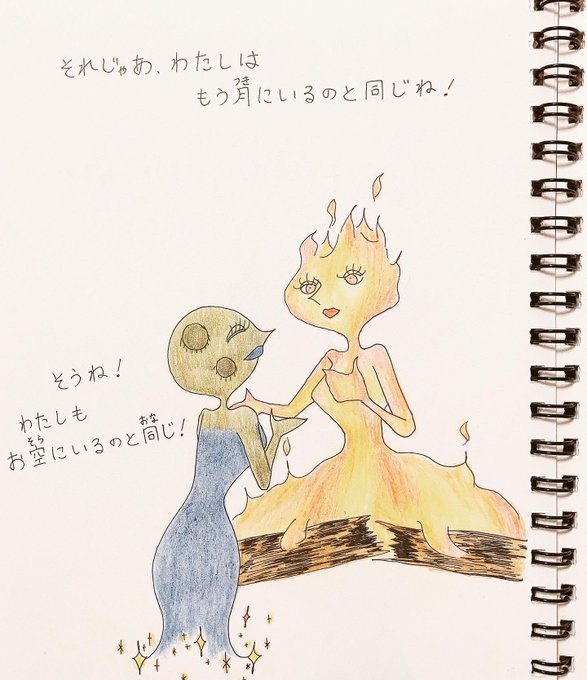 それじゃあ、わたしは
つき
もう月にいるのと同じね!
そうね!
わたしも
そら おな
お空にいるのと同じ!